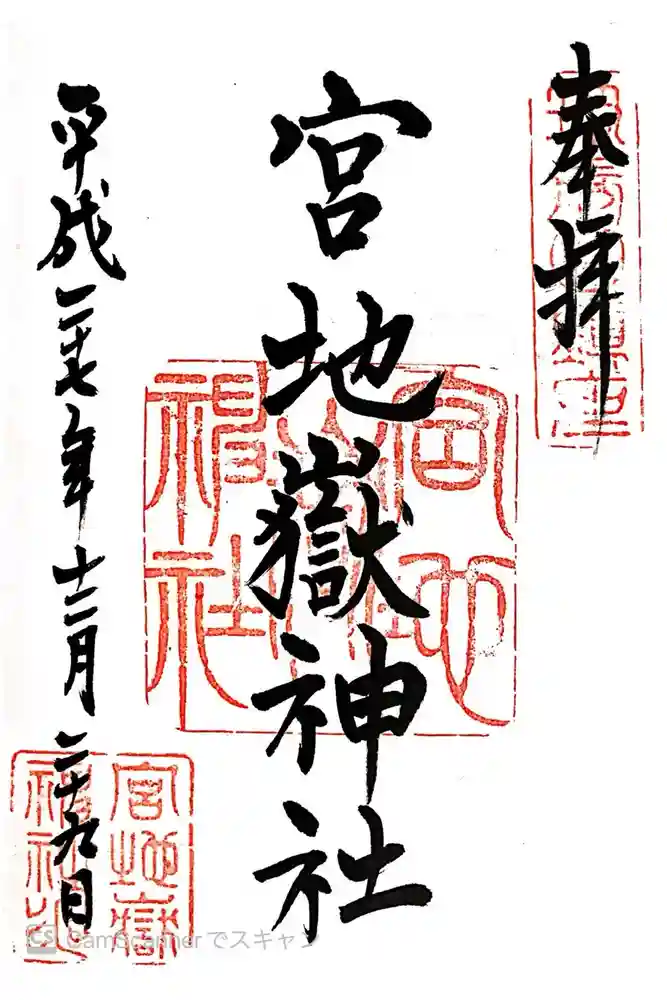 奉拝
宮地嶽神社
平成二十七年十二月二十九日
宮地嶽神社
宮地嶽神社
CS CamScannerでスキャン